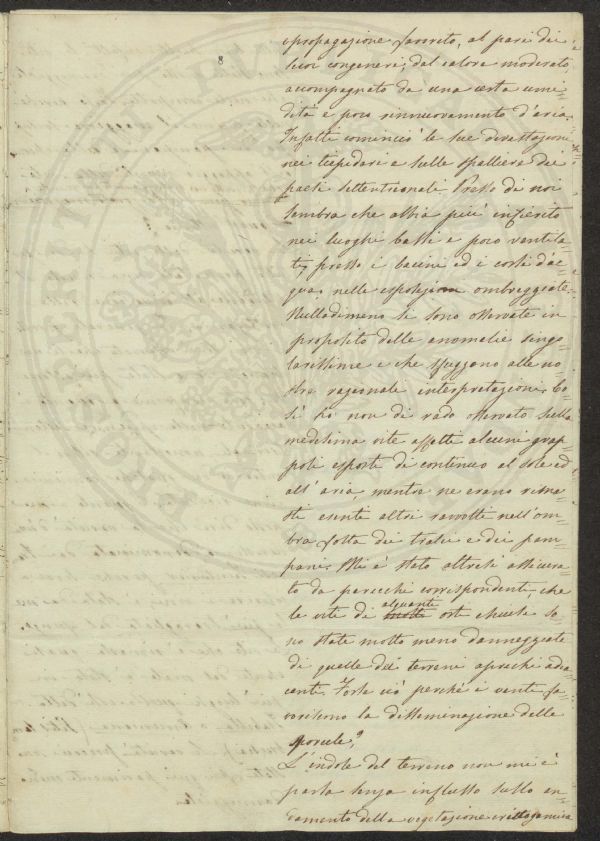 8
propagazione favorito, al pari dei
suoi congeneri, dal calore moderato,
accompagnato da una certa umi=
dità e poco rinnuovamento d'aria.
Infatti cominciò le sue devastazioni
nei tiepidari e sulle spalliere dei
paesi settentrionali. Presso di noi
sembra che abbia più infierito
nei luoghi bassi e poco ventila=
ti, presso i bacini ed i corsi d'ac=
qua, nelle esposizioni ombreggiate.
Nulladimeno si sono osservate in
proposito delle anomalie singo=
larissime e che sfuggono alle no=
stre razionali interpretazioni. Co=
sì ho non di rado osservato sulla
medesima vite affetti alcuni grap=
poli esposti di continuo al sole ed
all'aria, mentre ne erano rima=
sti esenti altri ravvolti nell'om=
bra folta dei tralci e dei pam=
pani. Mi è stato altresì assicura=
to da parecchi corrispondenti, che
le viti di alquanti orti chiusi so=
no state molto meno danneggiate
di quelle dei terreni aprichi adia=
centi. Forse ciò perché i venti fa=
voriscono la disseminazione delle
sporule?
L'indole del terreno non mi è
parsa senza influsso sullo an=
damento della vegetazione crittogamica